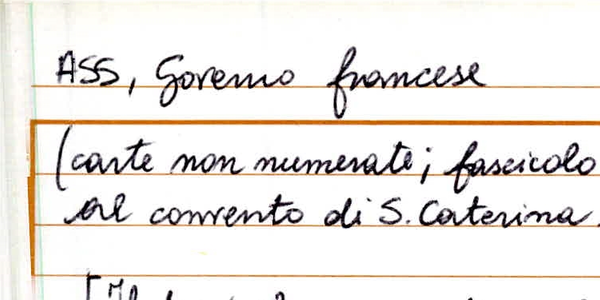 ASS, Governo francese
(carte non numerate; fascicolo
al convento di S. Caterina.
["Il